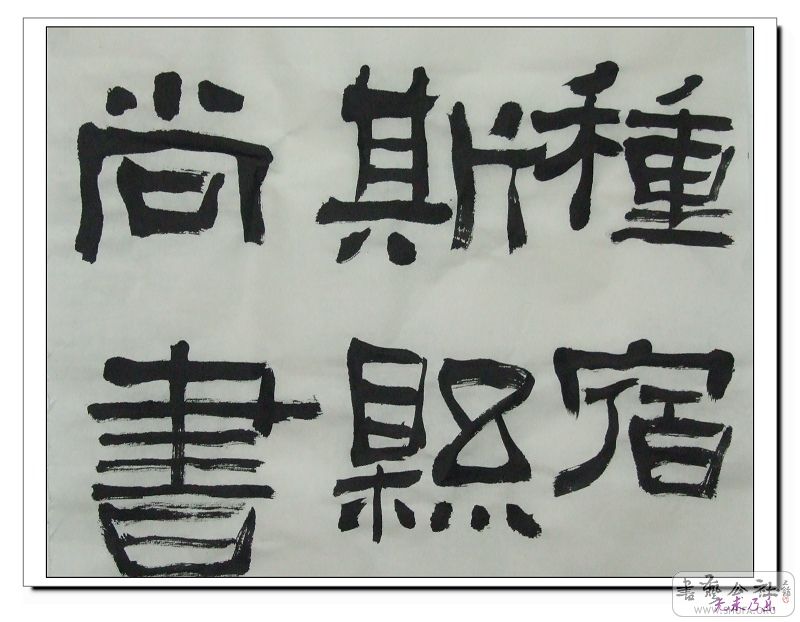 種宿
斯縣
尚書
書藝公社